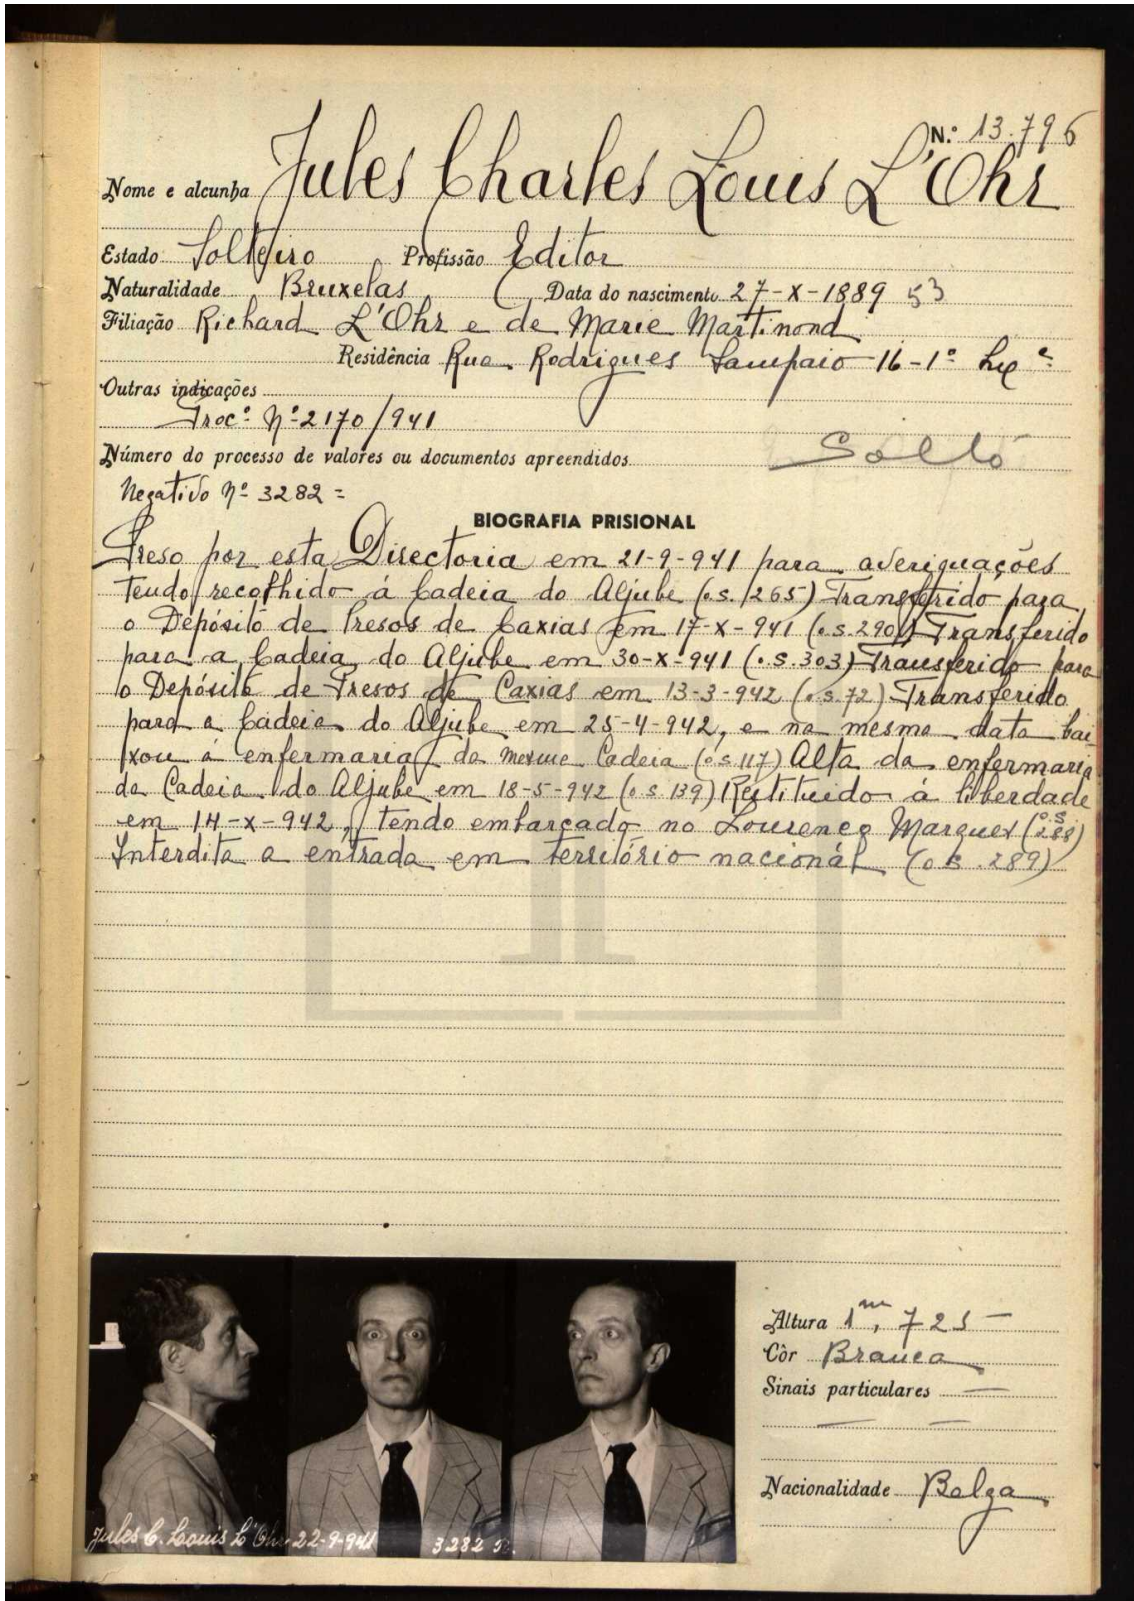 N.º 13.796
Nome e alcunha Jules Charles Louis L'Ohr
Estado Solteiro Profissão Editor
Naturalidade Bruxelas Data do nascimento 27-X-1889 53
Filiação Richard L'Ohr e de Marie Martinond
Residência Rua Rodrigues Sampaio 16-1º Lxª
Outras indicações
Procº Nº 2170/941
Soltó
Número do processo de valores ou documentos apreendidos
Negativo Nº 3282 =
BIOGRAFIA PRISIONAL
Preso por esta Directoria em 21-9-941 para averiguações
tendo recolhido á Cadeia do Aljube (o.s. 265) Transferido para
o Depósito de Presos de Caxias em 17-X-941 (o.s. 290) Transferido
para a Cadeia do Aljube em 30-X-941 (o.s. 303) Transferido para
o Depósito de Presos de Caxias em 13-3-942 (o.s. 72) Transferido
para a Cadeia do Aljube em 25-4-942, e na mesma data bai-
xou á enfermaria da mesma Cadeia (o.s. 117) Alta da enfermaria
da Cadeia do Aljube em 18-5-942 (o.s. 139) Restituido á liberdade
em 14-X-942, tendo embarcado no Lourenço Marques (o.s. 288)
Interdita a entrada em território nacionál (o.s. 289)
Altura 1m,725
Côr Branca
Sinais particulares
Nacionalidade Belga
Jules C. Louis L'Ohr 22-9-941 3282